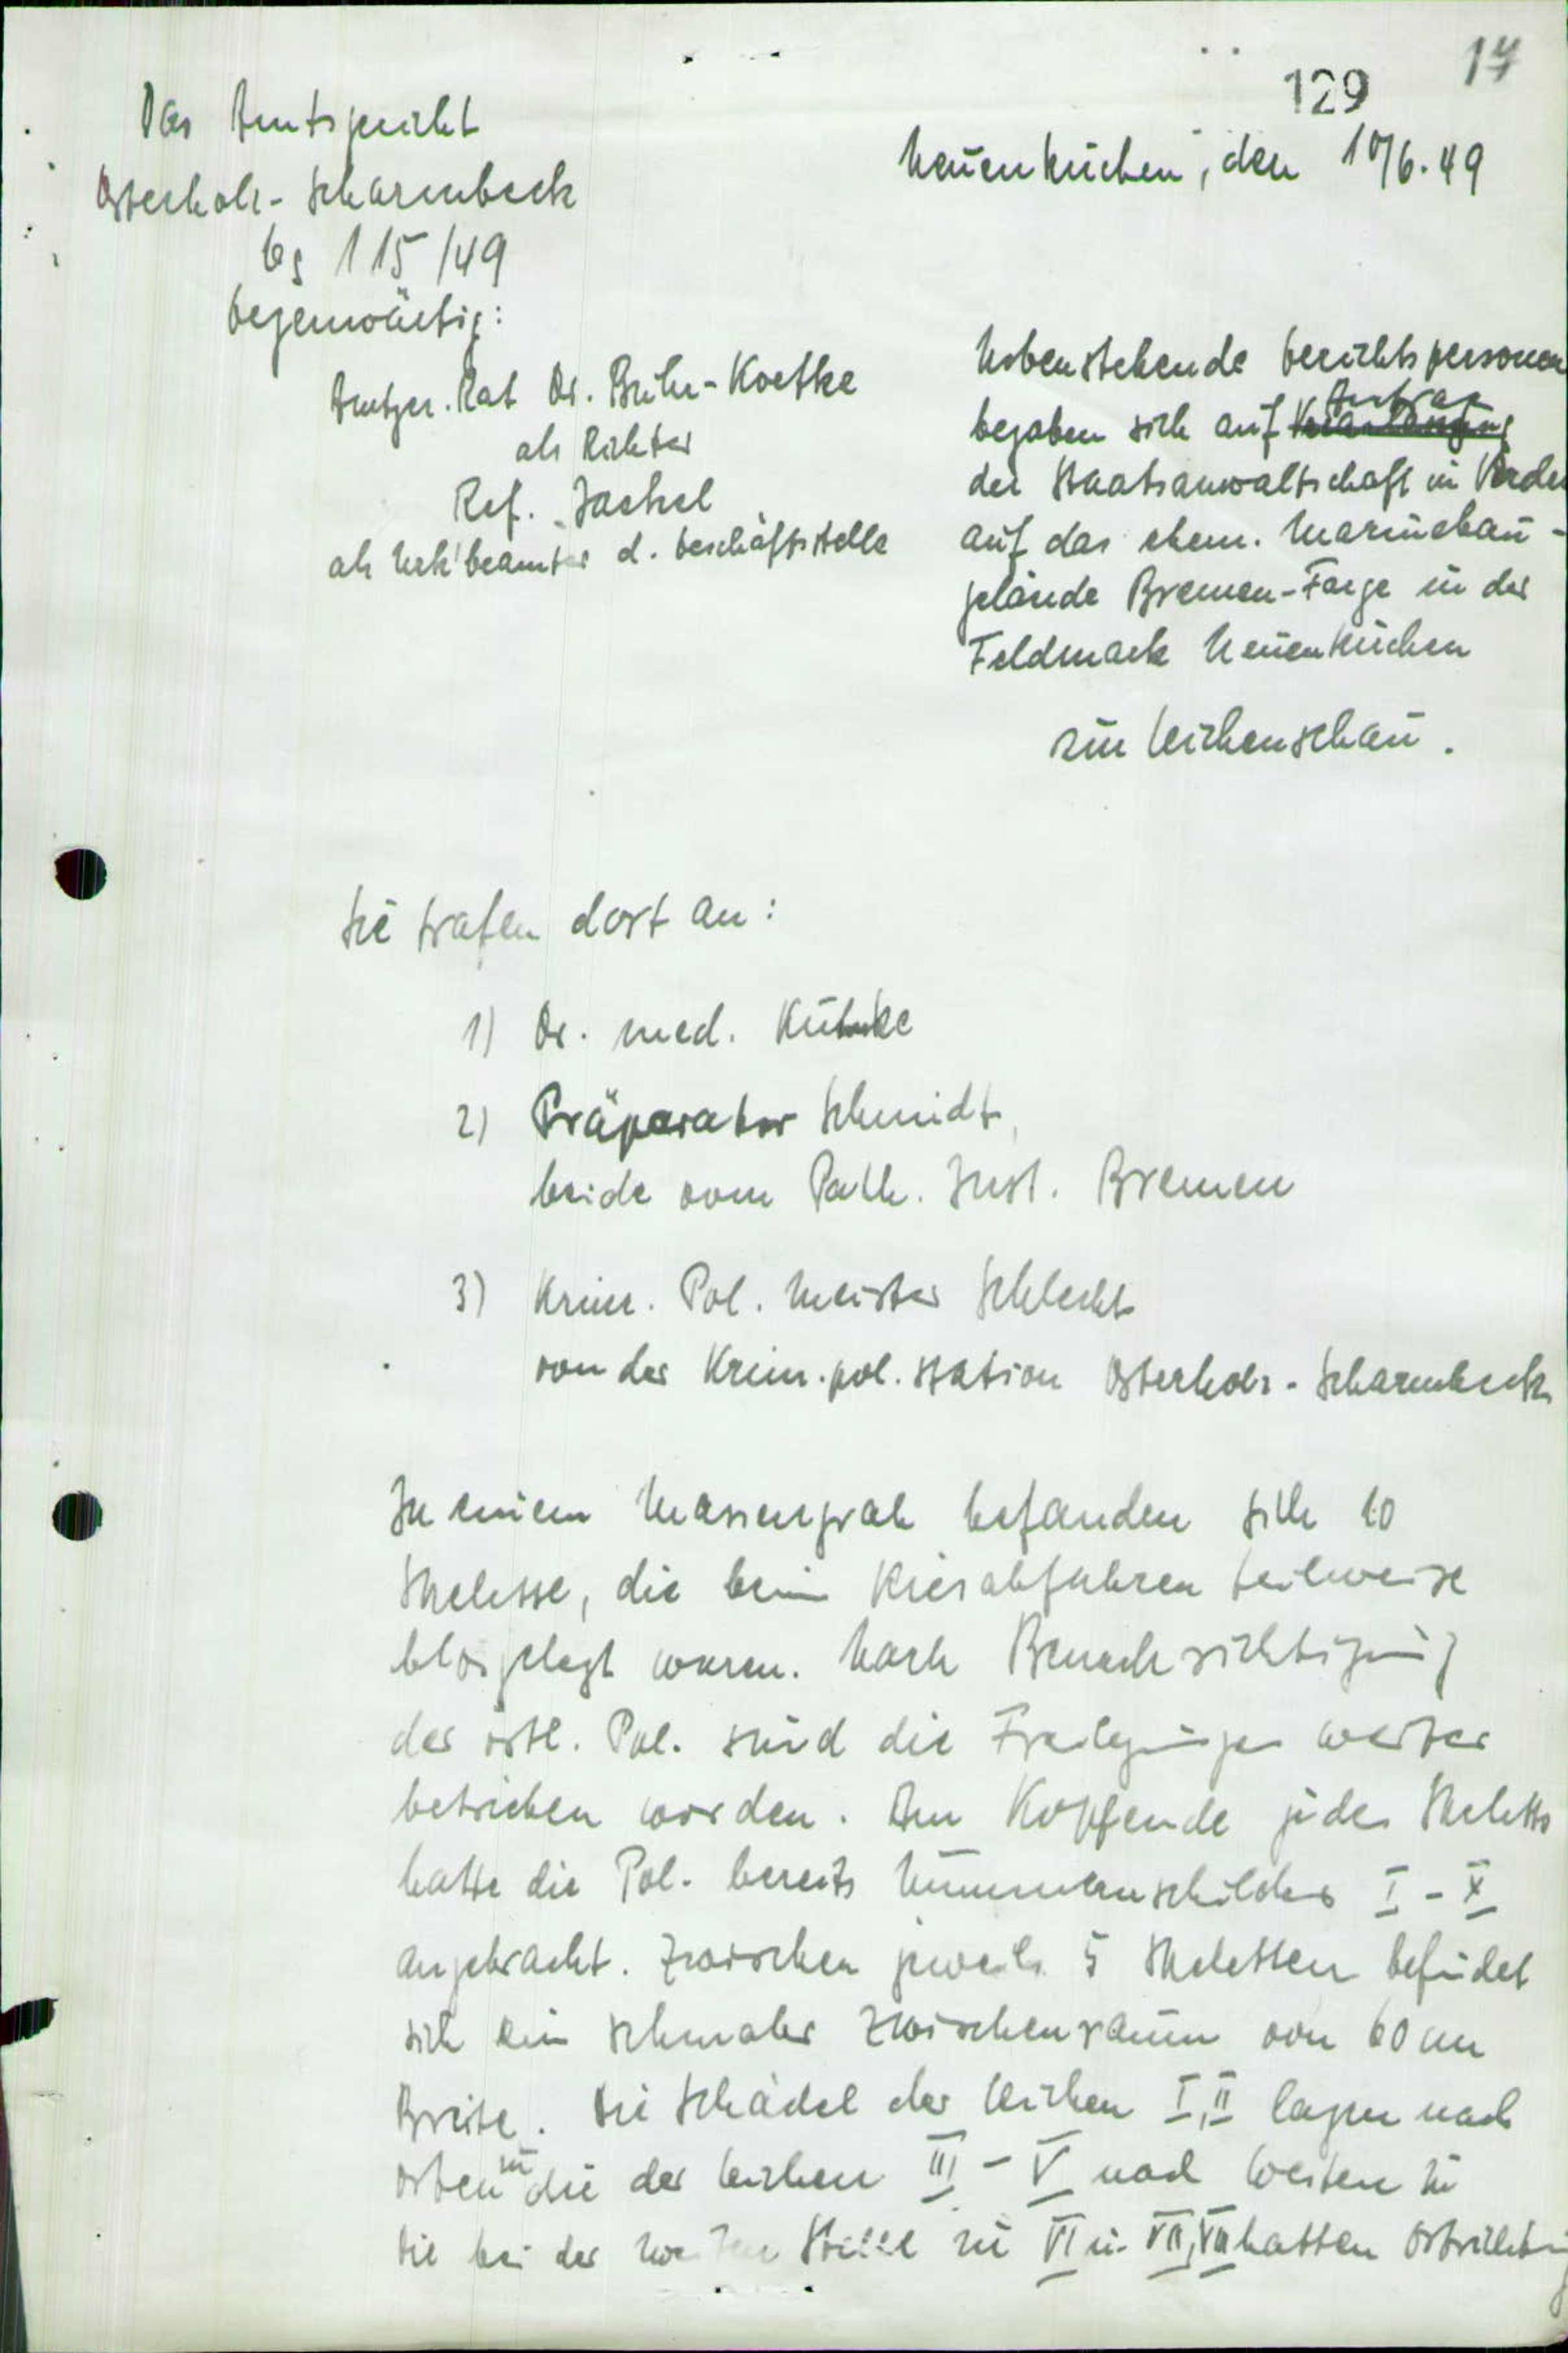 129 17
Das Amtsgericht
Osterholz-Scharmbeck
Gs 115/49
Neuenkirchen, den 10/6.49
Gegenwärtig:
Amtsger. Rat Dr. Bühr-Koethke
als Richter
Ref. Jaekel
als Urk'beamter d. Geschäftsstelle
Nebenstehende Gerichtspersonen
begaben sich auf Antrag
der Staatsanwaltschaft in Verden
auf das ehem. Marinebau-
gelände Bremen-Farge in der
Feldmark Neuenkirchen
zur Leichenschau.
Sie trafen dort an:
1) Dr. med. Kühnke
2) Präparator Schmidt,
beide vom Path. Inst. Bremen
3) Krim. Pol. Meister Schlecht
von der Krim.pol.station Osterholz-Scharmbeck
In einem Massengrab befanden sich 10
Skelette, die beim Kiesabfahren teilweise
blosgelegt waren. Nach Benachrichtigung
der örtl. Pol. sind die Freilegungen weiter
betrieben worden. Am Kopfende jedes Skeletts
hatte die Pol. bereits Nummernschilder I - X
angebracht. Zwischen jeweils 5 Skeletten befindet
sich ein schmaler Zwischenraum von 60 cm
Breite. Die Schädel der Leichen I, II lagen nach
Osten zu die der Leichen III - V nach Westen zu
Die bei der zweiten Stelle zu VI u. VII, VIII hatten Ostrichtung